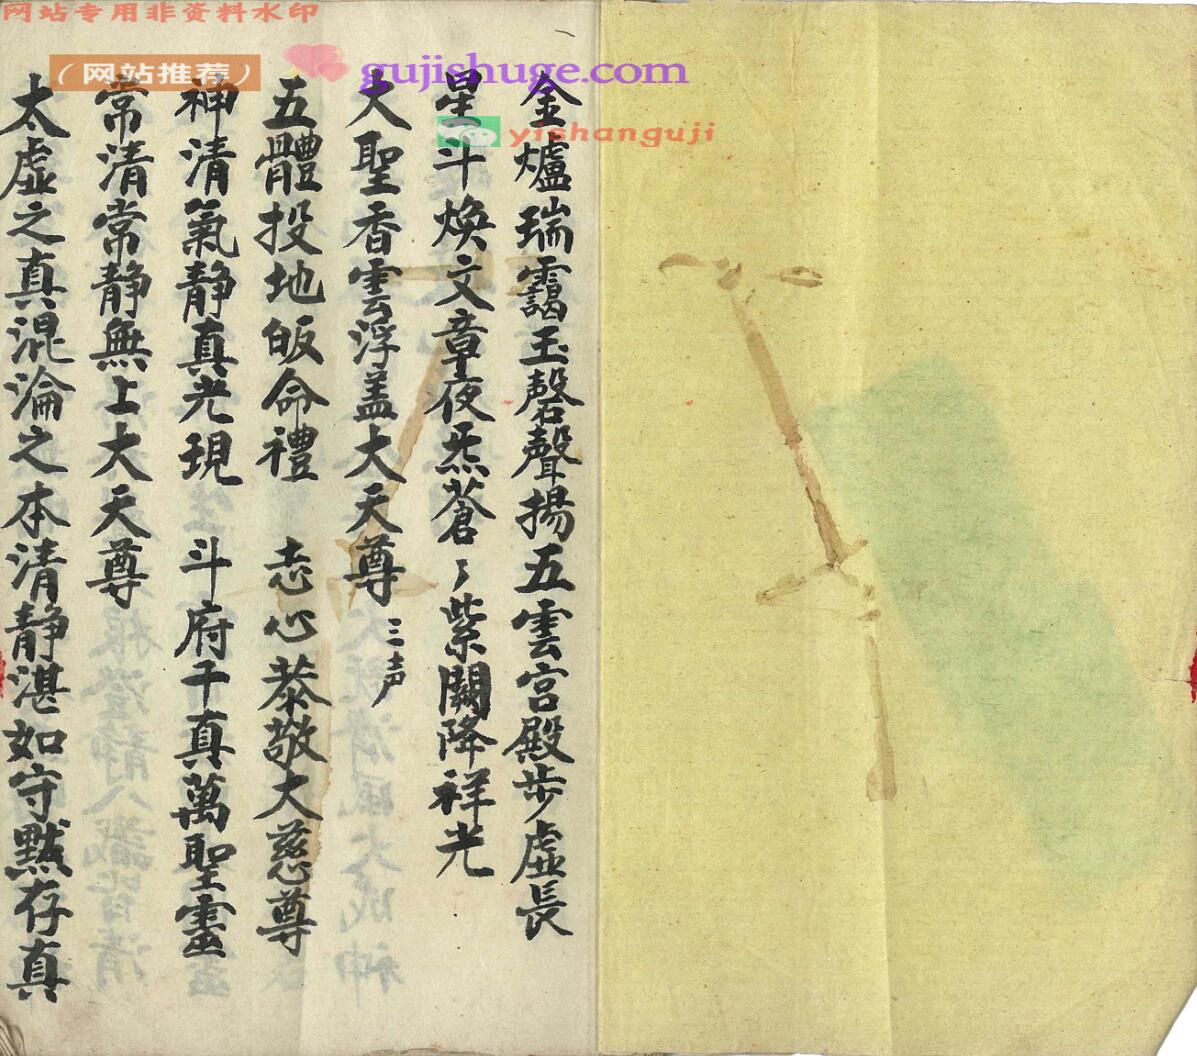 网站专用非资料水印
（网站推荐）
gujishuge.com
yishanguji
金爐瑞靄玉磬聲揚五雲宮殿步虛長
星斗煥文章夜炁蒼〻紫闕降祥光
大聖香雲浮盖大天尊三声
五體投地皈命禮 志心恭敬大慈尊
神清氣静真光現 斗府千真萬聖靈
常清常静無上大天尊
太虛之真混淪之本清静湛如守默存真